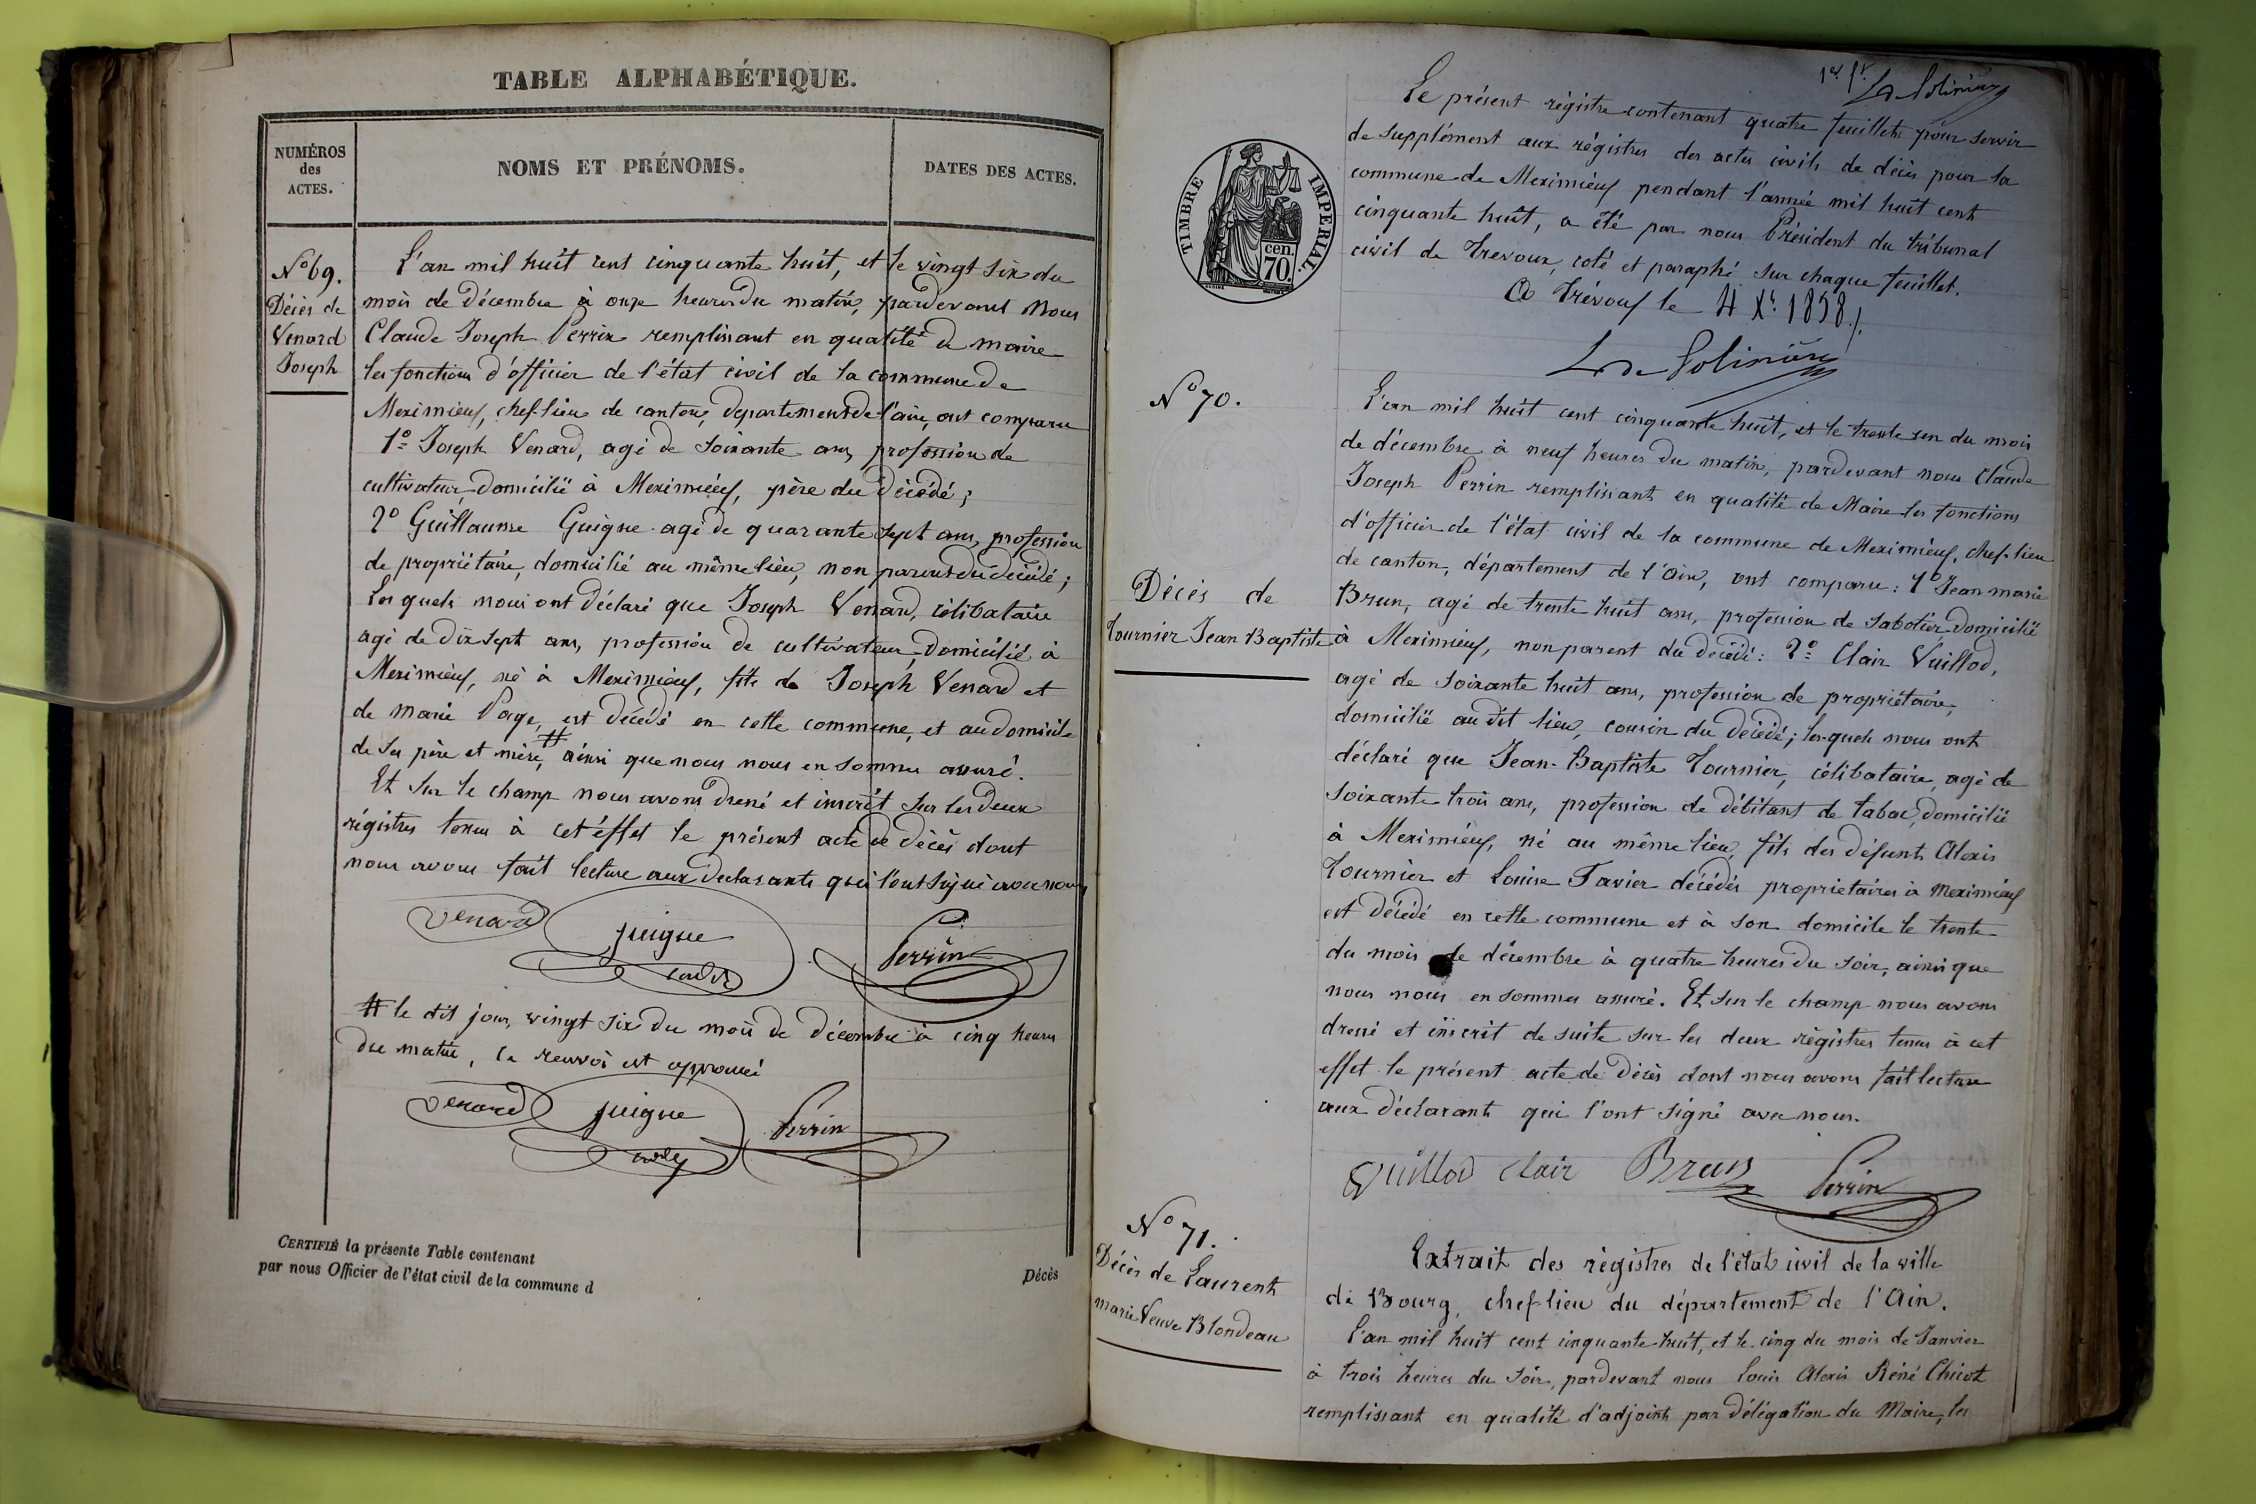 TABLE ALPHABÉTIQUE.
NUMÉROS
des
ACTES.
NOMS ET PRÉNOMS.
DATES DES ACTES.
Nº 69.
Décès de
Venard
Joseph
L'an mil huit cent cinquante huit, et le vingt six du
mois de décembre à onze heures du matin, pardevant Nous
Claude Joseph Perrin remplissant en qualité de maire
les fonctions d'officier de l'état civil de la commune de
Meximieux, chef-lieu de canton, departement de l'ain, ont comparu
1º Joseph Venard, agé de soixante ans, profession de
cultivateur, domicilié à Meximieux, père du décédé;
2º Guillaume Guigue agé de quarante sept ans, profession
de propriétaire, domicilié au même lieu, non parent du décédé;
les quels nous ont déclaré que Joseph Venard, célibataire
agé de dix sept ans, profession de cultivateur, domicilié à
Meximieux, né à Meximieux, fils de Joseph Venard et
de marie Page, est décédé en cette commune, et au domicile
de ses père et mère, # ainsi que nous nous en sommes assuré.
Et sur le champ nous avons dressé et inscrit sur les deux
régistres tenus à cet éffet le présent acte de décès dont
nous avons fait lecture aux declarants qui l'ont signé avec nous
Venard guigue Perrin
# le dit jour, vingt six du mois de décembre à cinq heures
du matin, le renvoi est approuvé
Venard guigue Perrin
CERTIFIÉ la présente Table contenant
par nous Officier de l'état civil de la commune d
Décès
1er ft.
TIMBRE IMPERIAL.
70 cen.
Le présent régistre contenant quatre feuillets pour servir
de supplément aux régistres des actes civils de décès pour la
commune de Meximieux pendant l'année mil huit cent
cinquante huit, a été par nous Président du tribunal
civil de Trevoux, coté et paraphé sur chaque feuillet.
A Trévoux le 4 Xr. 1858 ./.
Nº 70.
Décès de
Tournier Jean Baptiste
L'an mil huit cent cinquante huit, et le trente un du mois
de décembre à neuf heures du matin, pardevant nous Claude
Joseph Perrin remplissant en qualité de Maire les fonctions
d'officier de l'état civil de la commune de Meximieux, chef-lieu
de canton, département de l'Ain, ont comparu: 1º Jean marie
Brun, agé de trente huit ans, profession de sabotier, domicilié
à Meximieux, non parent du décédé: 2º Clair Vuillod,
agé de soixante huit ans, profession de propriétaire,
domicilié au dit lieu, cousin du décédé; les quels nous ont
déclaré que Jean-Baptiste Tournier, célibataire, agé de
soixante trois ans, profession de débitant de tabac, domicilié
à Meximieux, né au même lieu, fils des défunts Alexis
Tournier et Louise Favier décédés propriétaires à Meximieux
est décédé en cette commune et à son domicile le trente
du mois de décembre à quatre heures du soir, ainsi que
nous nous en sommes assuré. Et sur le champ nous avons
dressé et inscrit de suite sur les deux régistres tenus à cet
effet le présent acte de décès dont nous avons fait lecture
aux déclarants qui l'ont signé avec nous.
Vuillod Clair Brun Perrin
Nº 71.
Décès de Laurent
marie Veuve Blondeau
Extrait des régistres de l'état civil de la ville
de Bourg, chef-lieu du département de l'Ain.
L'an mil huit cent cinquante-huit, et le cinq du mois de Janvier
à trois heures du soir, pardevant nous Louis Alexis Réné Chicot
remplissant en qualité d'adjoint par délégation du Maire, les